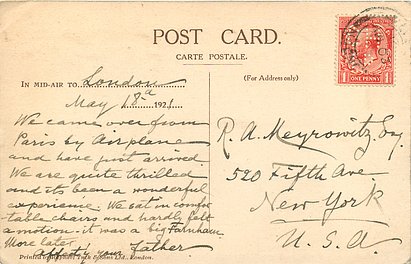 POST CARD.
CARTE POSTALE.
(For Address only)
ONE PENNY
IN MID-AIR TO London
May 18 192
We came over from
Paris by Airplane
and have just arrived.
We are quite thrilled
and its been a wonderful
experience. We sat in comfor-
table chairs and hardly felt
a motion - it was a big Farnham
More later
Affcty your Father
Printed by Tuck & Sons Ltd., London.
R. A. Meyrowitz, Esq
520 Fifth Ave.
New York
U. S. A.